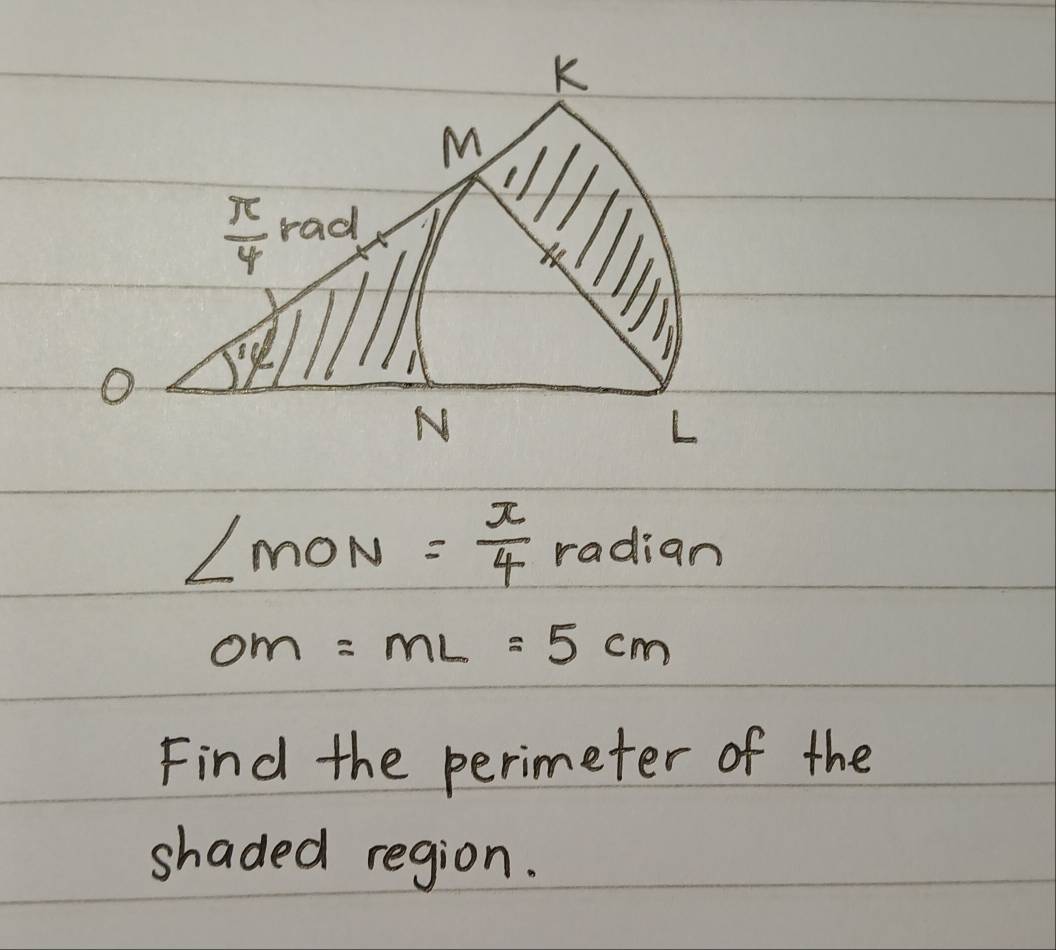 K
M
π/4 rad
O
N
L
∠MON = π/4 radian
OM = ML = 5 cm
Find the perimeter of the
shaded region.